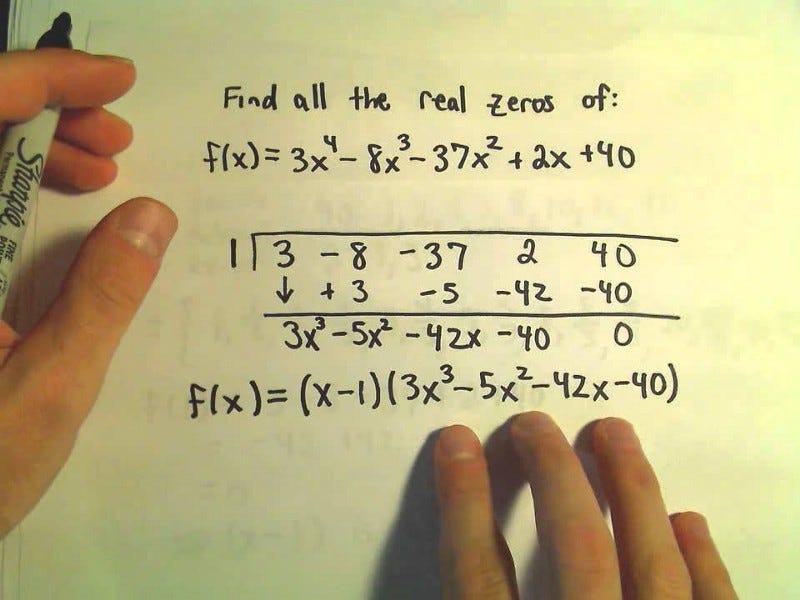 Find all the real zeros of:
f(x) = 3x⁴ - 8x³ - 37x² + 2x + 40
1 | 3 - 8 - 37 2 40
↓ + 3 - 5 - 42 - 40
3x³ - 5x² - 42x - 40 0
f(x) = (x-1)(3x³ - 5x² - 42x - 40)
Sharpie
FINE